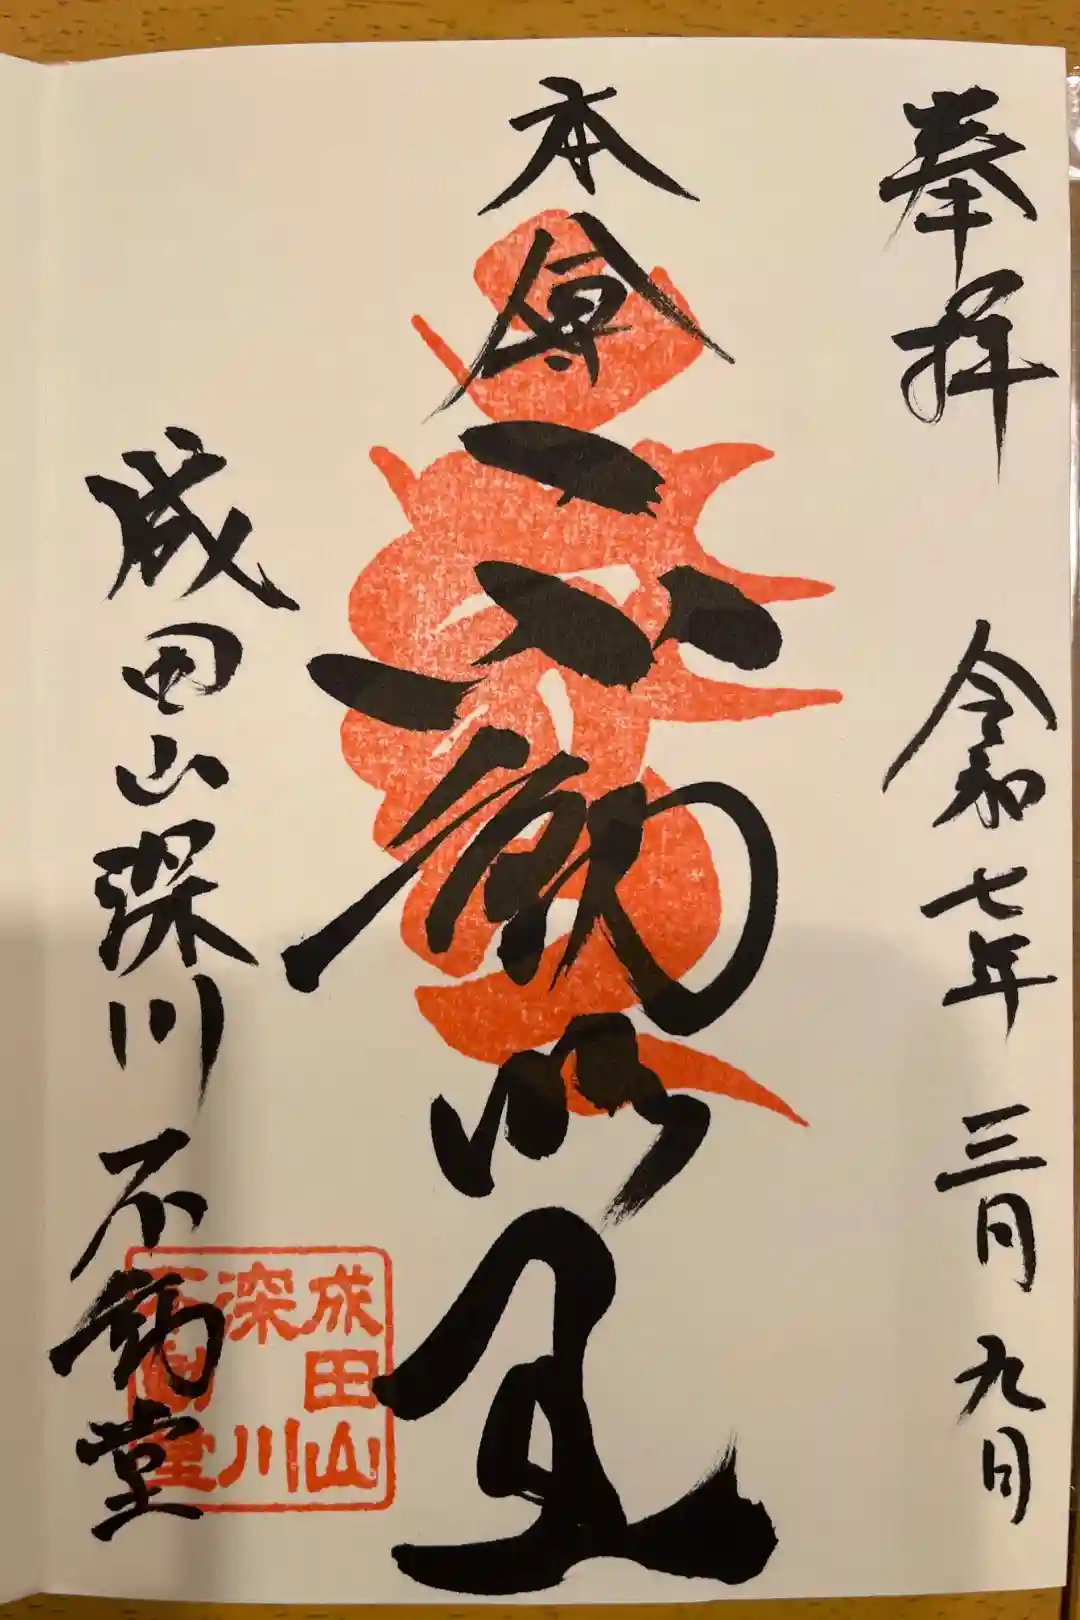 奉拝 令和七年三月九日
本尊 不動明王
成田山深川不動堂
成田山
深川
不動堂